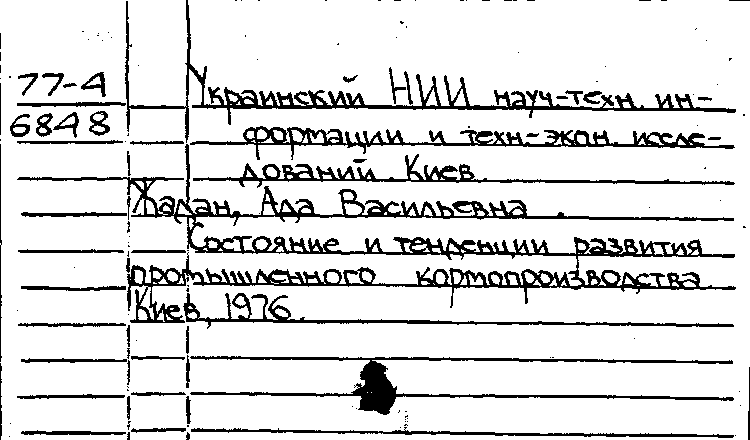 77-4
6848
Украинский НИИ науч-техн. ин-
формации и техн.-экон. иссле-
дований. Киев.
Жадан, Ада Васильевна.
Состояние и тенденции развития
промышленного кормопроизводства
Киев, 1976.